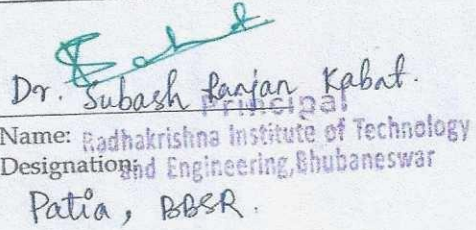 Dr. Subash Ranjan Kabat.
Principal
Name: Radhakrishna Institute of Technology
Designation: and Engineering, Bhubaneswar
Patia, BBSR.